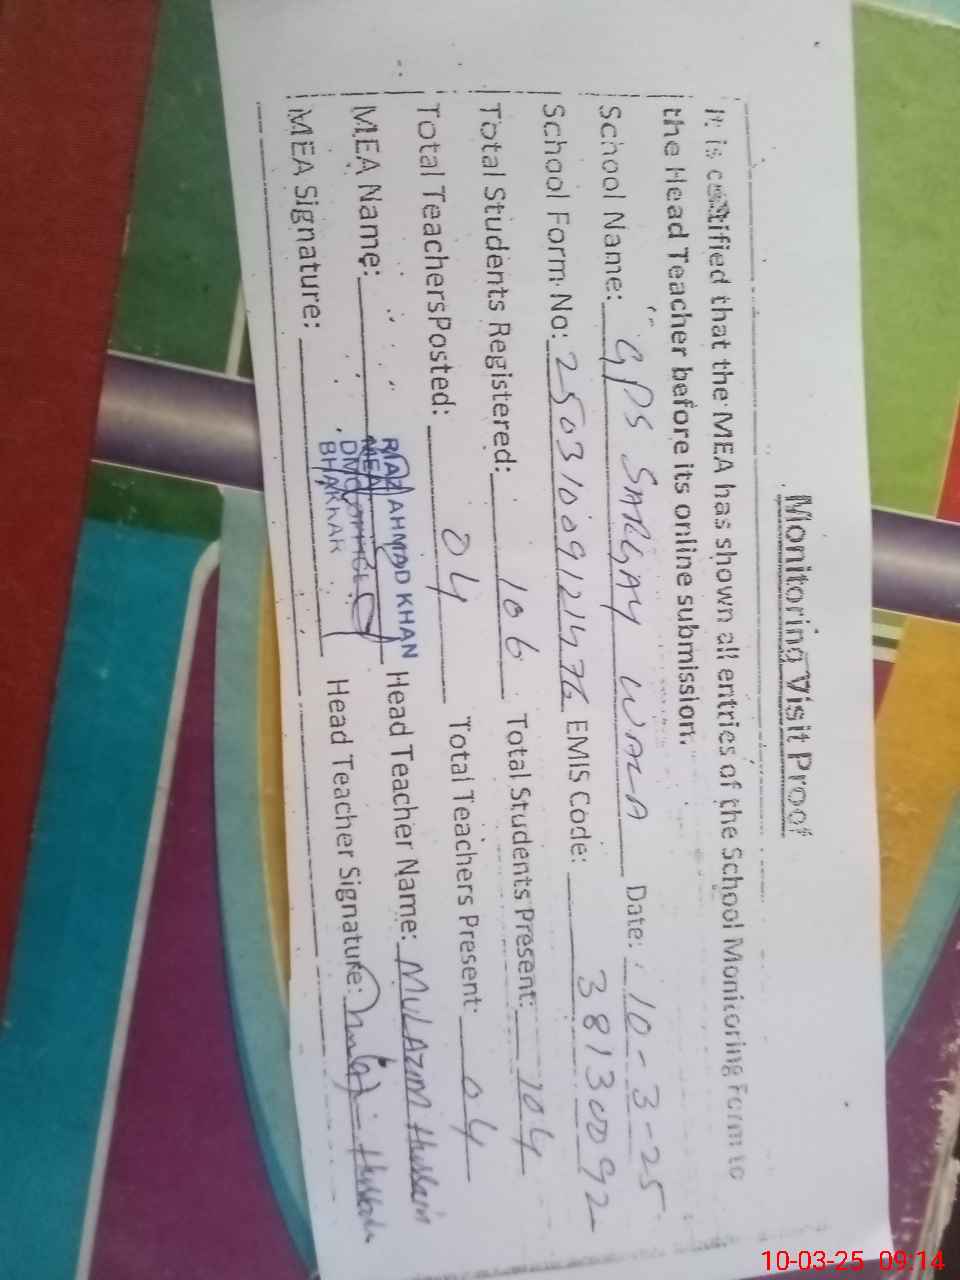 Monitoring Visit Proof
It is certified that the MEA has shown all entries of the School Monitoring Form to
the Head Teacher before its online submission.
School Name: GPS SARGAY WALA Date: 10-3-25
School Form No: EMIS Code: 38130092
Total Students Registered: 106 Total Students Present: 104
Total TeachersPosted: 04 Total Teachers Present: 04
MEA Name: RIAZ AHMAD KHAN Head Teacher Name: MULAZIM Hussain
MEA
BHAKKAR
MEA Signature: Head Teacher Signature: Hussain
10-03-25 09:14